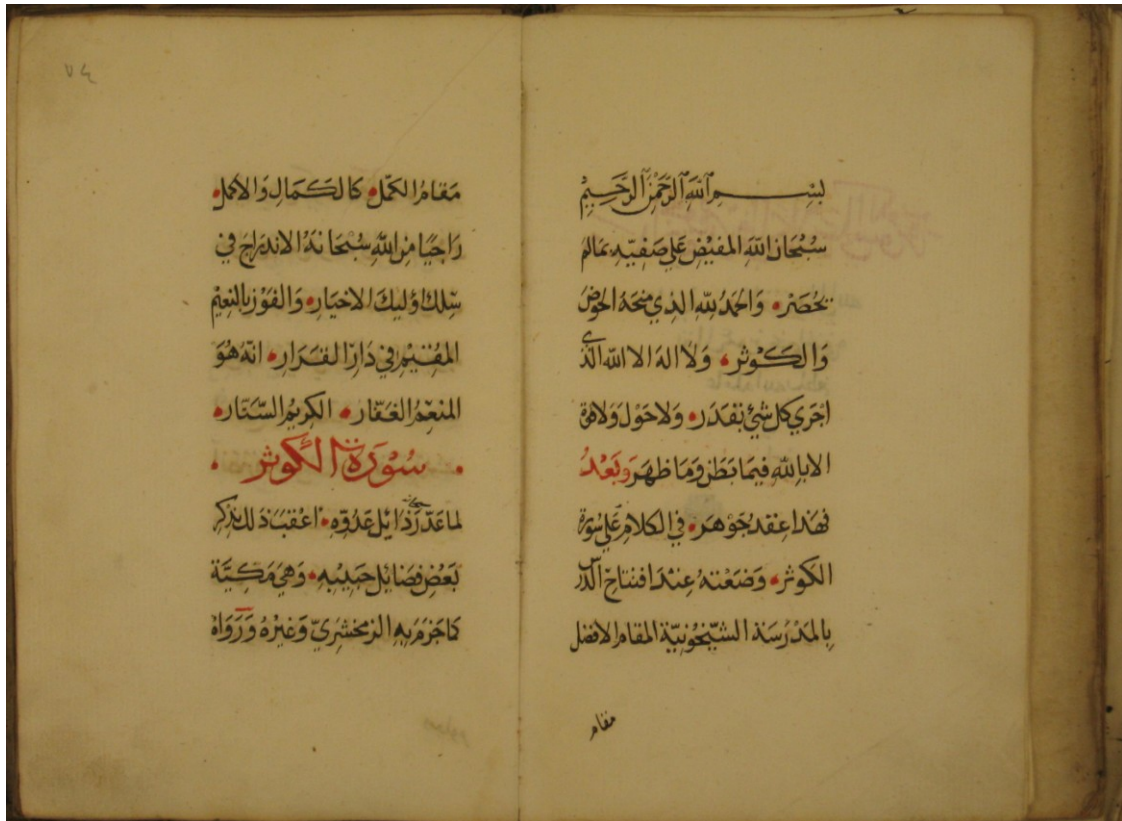 بِسْمِ اللّٰهِ الرَّحْمٰنِ الرَّحِيْمِ
سُبْحَانَ اللّٰهِ المفيْضِ عَلي صَفِيّهِ بمَالم
يحْصَر، وَالحمْدُ للّٰهِ الذِي منحَهُ الحوْضَ
وَالكَوْثر، وَلا اله الا اللّٰه الّذي
اجْرَي كل شيْ بقدَر، وَلا حَوْل وَلا قوّة
الا باللّٰهِ فيمَا بَطنَ وَمَا ظهَرَ وَبَعْدُ
فهَذا عِقد جَوْهر، في الكلامِ عَلي سُورة
الكوثر، وَضَعْتهُ عِنْدَ افتتاحِ الدّرس
بِالمَدْرسَة الشيْخُونيّة المقام الافضل
مقام
٧٤
مَقامُ الكمّل، كالكَمَالِ وَالاكمل،
رَاجيًا مِنَ اللّٰهِ سُبْحَانهُ الاندرَاجَ في
سِلك اوُليكَ الاخيَار، وَالفَوْز بالنعِيْم
المُقيْمِ في دَارِ القرَار، انّه هُوَ
المنعِمُ الغَفّار، الكريمُ السّتَار،
سُوْرَة الكوثر
لما عَدّ رَذايل عَدُوّهِ، اعْقبَ ذلك بذِكر
بَعْضِ فضَايل حَبيْبهِ، وَهِي مَكيَّة
كما جَزمَ بهِ الزمخشرِيّ وَغيْرُهُ وَرَوَاهُ